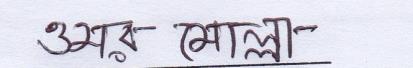 ওমর মোল্লা